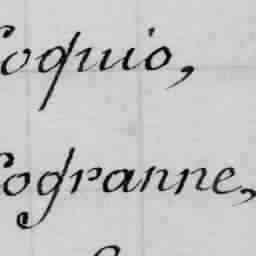 oquio,
ogranne,